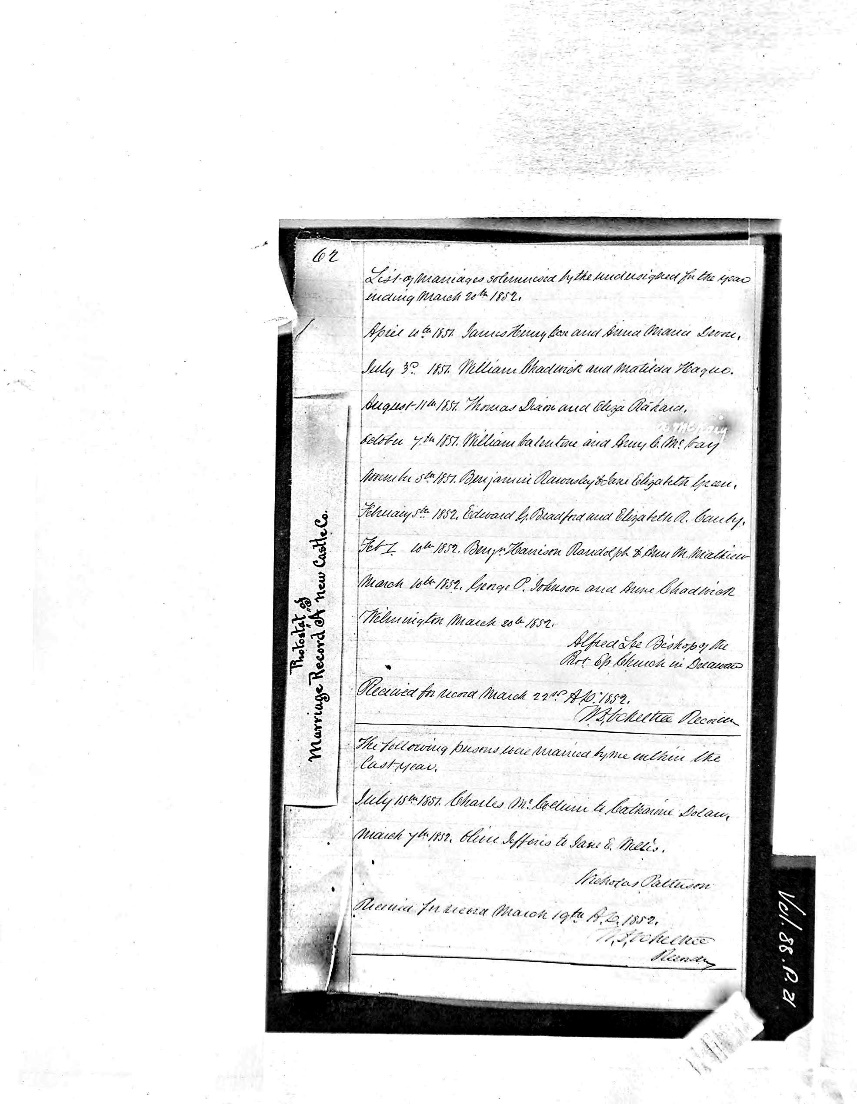 62
List of Marriages solemnised by the undersigned for the year
ending March 20th 1852.
April 1851. James Henry and Anna Maria
July 3d 1851. William Chadwick and Matilda Hague.
August 11th 1851. Thomas and Eliza
October 7th 1851. William Valentine and Amy C. McCay
November 5th 1851. Benjamin & Jane Elizabeth Green.
February 5th 1852. Edward G. Bradford and Elizabeth R. Canby.
Feb 10th 1852. Benjn Harrison Randolph & Ann M. Mathiew
March 10th 1852. George P. Johnson and Anne Chadwick
Wilmington March 20th 1852.
Alfred Lee Bishop of the
Prot. Ep. Church in Delaware
Received for record March 22nd A.D. 1852.
Recorder
The following persons were married by me within the
last year.
July 15th 1851. Charles Mc to Catharine Dolan,
March 7th 1852. Jefferis to Jane E.
Nicholas Patterson
Received for record March 19th A.D. 1852.
Recorder
Photostat of
Marriage Record "A" New Castle Co.
Vol. 88. P. 21